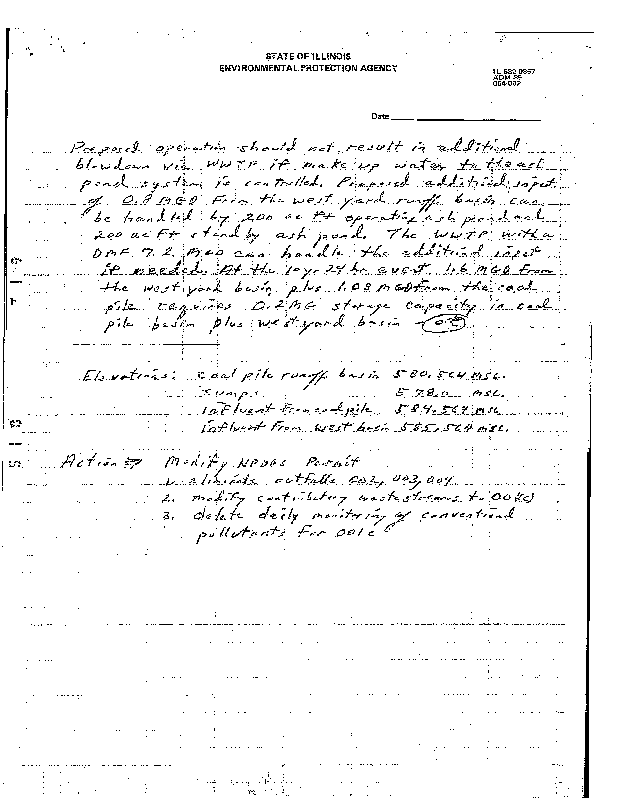 STATE OF ILLINOIS
ENVIRONMENTAL PROTECTION AGENCY
IL 532 0357
ADM 35
064-002
Date
Proposed operation should not result in additional
blowdown via WWTP if make up water to the ash
pond system is controlled. Proposed additional input
of 0.8 MGD from the west yard runoff basin can
be handled by 200 ac ft operating ash pond and
200 ac ft stand by ash pond. The WWTP with a
DMF 7.2 MGD can handle the additional input
if needed. At the 10 yr 24 hr event 1.6 MGD from
the west yard basin plus 1.08 MGD from the coal
pile requires 0.2 MG storage capacity in coal
pile basin plus west yard basin - OK
Elevations: coal pile runoff basin 580.564 msl.
sumps 578.0 msl.
influent from coal pile 584.564 msl
influent from west basin 585.564 msl.
Action ⇒ Modify NPDES Permit
1. eliminate outfalls 002, 003, 004
2. modify contributory wastestreams to 001
3. delete daily monitoring of conventional
pollutants for 001c